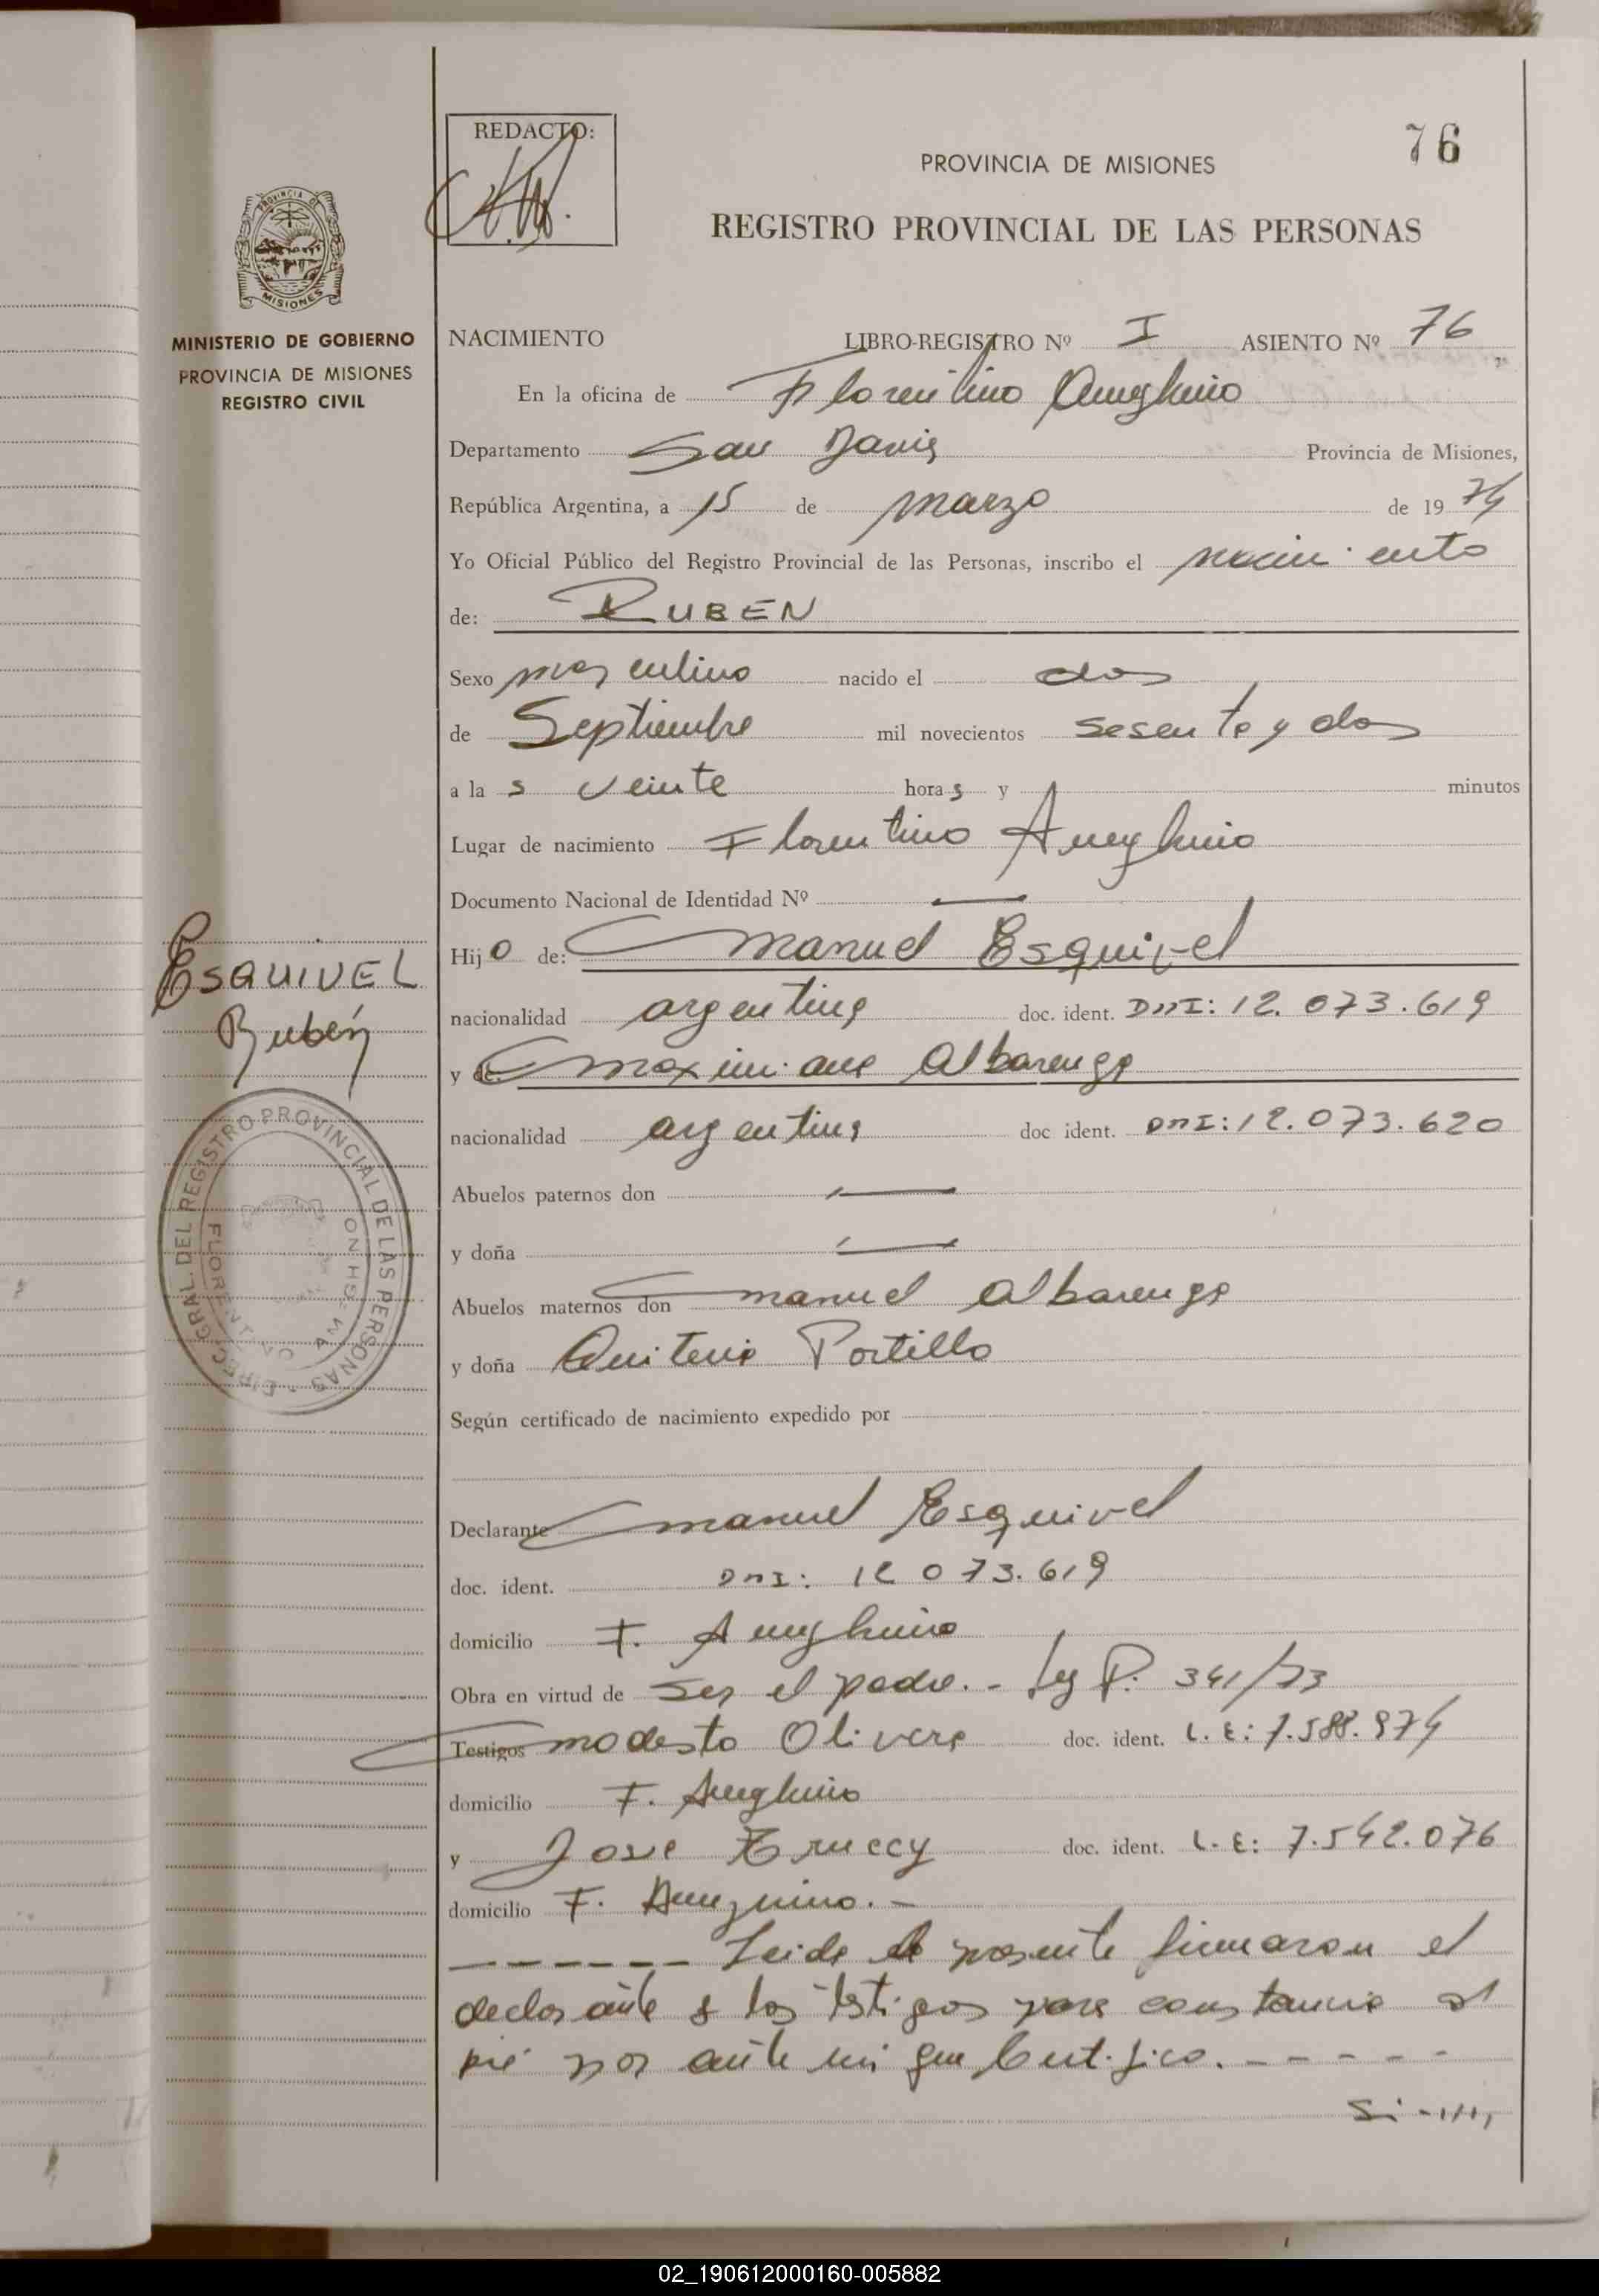 76
REDACTO:
PROVINCIA DE MISIONES
REGISTRO PROVINCIAL DE LAS PERSONAS
PROVINCIA DE MISIONES
MINISTERIO DE GOBIERNO
PROVINCIA DE MISIONES
REGISTRO CIVIL
NACIMIENTO LIBRO-REGISTRO Nº I ASIENTO Nº 76
En la oficina de Florentino Ameghino
Departamento San Javier Provincia de Misiones,
República Argentina, a 15 de marzo de 1974
Yo Oficial Público del Registro Provincial de las Personas, inscribo el nacimiento
de: RUBEN
Sexo masculino nacido el dos
de Septiembre mil novecientos sesenta y dos
a la s veinte hora s y minutos
Lugar de nacimiento Florentino Ameghino
Documento Nacional de Identidad Nº —
Hijo de: Manuel Esquivel
ESQUIVEL
Rubén
nacionalidad argentina doc. ident. DNI: 12.073.619
y de: Maximiana Albarenga
nacionalidad argentina doc ident. DNI: 12.073.620
Abuelos paternos don —
y doña —
Abuelos maternos don Manuel Albarenga
y doña Quiteria Portillo
DIREC. GRAL. DEL REGISTRO PROVINCIAL DE LAS PERSONAS
FLORENTINO AMEGHINO
Según certificado de nacimiento expedido por
Declarante Manuel Esquivel
doc. ident. DNI: 12 073.619
domicilio F. Ameghino
Obra en virtud de ser el padre. - Ley P. 341/73
Testigos Modesto Olivera doc. ident. L. E: 7.588.974
domicilio F. Ameghino
y Jose doc. ident. L. E: 7.542.076
domicilio F. Ameghino. -
------ Leida la presente firmaron el
declarante y los testigos para constancia al
pie por ante mi que Certifico. - - - - -
Si-///,
02_190612000160-005882